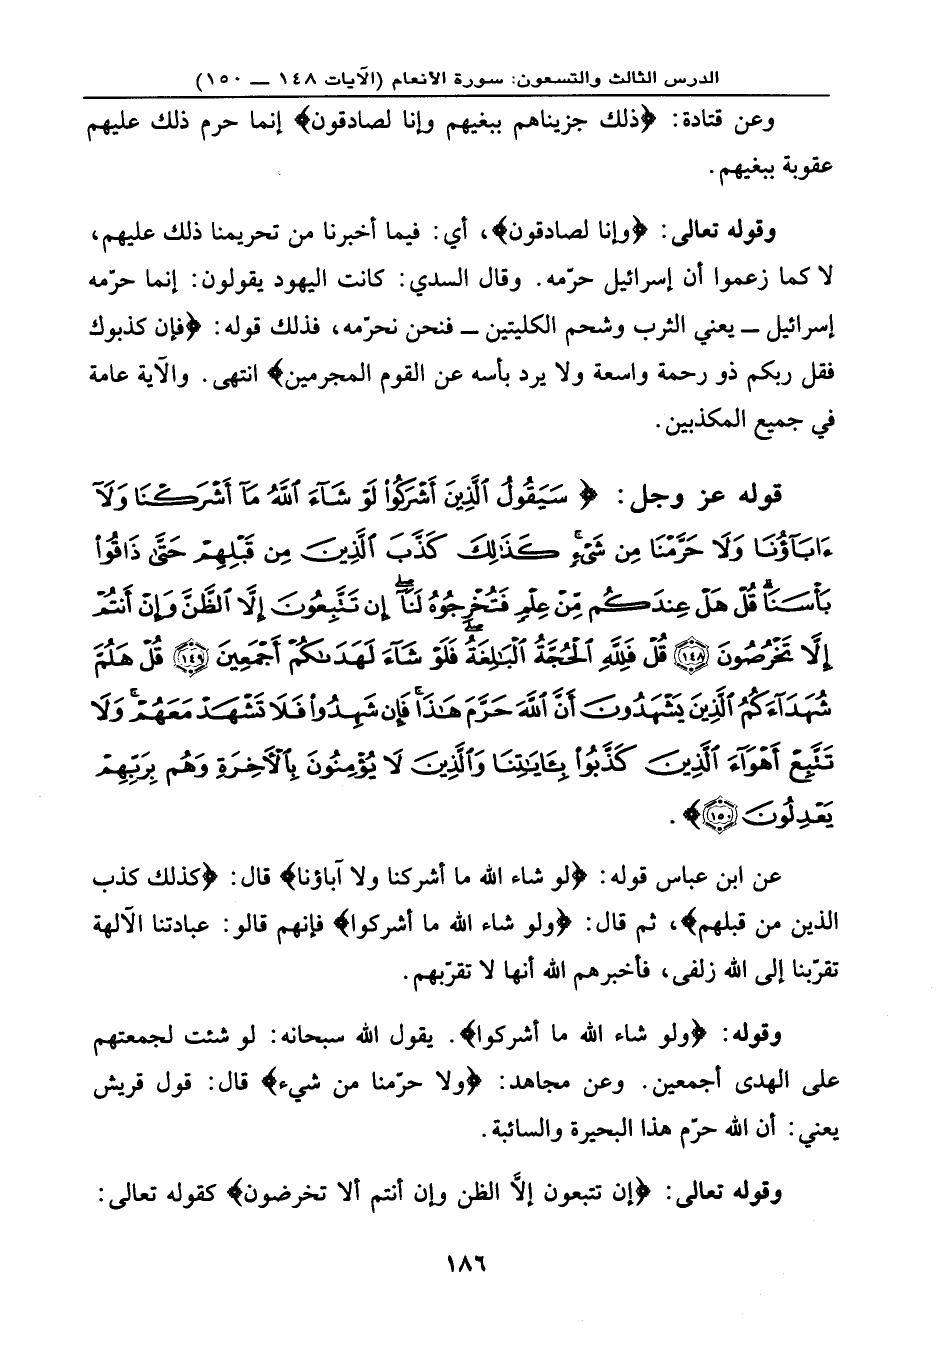 الدرس الثالث والتسعون: سورة الانعام (الآيات ١٤٨ ـــ ١٥٠)
وعن قتادة: ﴿ذلك جزيناهم ببغيهم وإنا لصادقون﴾ إنما حرم ذلك عليهم
عقوبة ببغيهم.
وقوله تعالى: ﴿وإنا لصادقون﴾، أي: فيما أخبرنا من تحريمنا ذلك عليهم،
لا كما زعموا أن إسرائيل حرّمه. وقال السدي: كانت اليهود يقولون: إنما حرّمه
إسرائيل ـ يعني الثرب وشحم الكليتين ـ فنحن نحرّمه، فذلك قوله: ﴿فإن كذبوك
فقل ربكم ذو رحمة واسعة ولا يرد بأسه عن القوم المجرمين﴾ انتهى. والآية عامة
في جميع المكذبين.
قوله عز وجل: ﴿ سَيَقُولُ ٱلَّذِينَ أَشْرَكُوا۟ لَوْ شَآءَ ٱللَّهُ مَآ أَشْرَكْنَا وَلَآ
ءَابَآؤُنَا وَلَا حَرَّمْنَا مِن شَىْءٍ ۚ كَذَٰلِكَ كَذَّبَ ٱلَّذِينَ مِن قَبْلِهِمْ حَتَّىٰ ذَاقُوا۟
بَأْسَنَا ۗ قُلْ هَلْ عِندَكُم مِّنْ عِلْمٍ فَتُخْرِجُوهُ لَنَآ ۖ إِن تَتَّبِعُونَ إِلَّا ٱلظَّنَّ وَإِنْ أَنتُمْ
إِلَّا تَخْرُصُونَ ١٤٨ قُلْ فَلِلَّهِ ٱلْحُجَّةُ ٱلْبَٰلِغَةُ ۖ فَلَوْ شَآءَ لَهَدَىٰكُمْ أَجْمَعِينَ ١٤٩ قُلْ هَلُمَّ
شُهَدَآءَكُمُ ٱلَّذِينَ يَشْهَدُونَ أَنَّ ٱللَّهَ حَرَّمَ هَٰذَا ۖ فَإِن شَهِدُوا۟ فَلَا تَشْهَدْ مَعَهُمْ ۚ وَلَا
تَتَّبِعْ أَهْوَآءَ ٱلَّذِينَ كَذَّبُوا۟ بِـَٔايَٰتِنَا وَٱلَّذِينَ لَا يُؤْمِنُونَ بِٱلْـَٔاخِرَةِ وَهُم بِرَبِّهِمْ
يَعْدِلُونَ ١٥٠﴾.
عن ابن عباس قوله: ﴿لو شاء الله ما أشركنا ولا آباؤنا﴾ قال: ﴿كذلك كذب
الذين من قبلهم﴾، ثم قال: ﴿ولو شاء الله ما أشركوا﴾ فإنهم قالو: عبادتنا الآلهة
تقرّبنا إلى الله زلفى، فأخبرهم الله أنها لا تقرّبهم.
وقوله: ﴿ولو شاء الله ما أشركوا﴾. يقول الله سبحانه: لو شئت لجمعتهم
على الهدى أجمعين. وعن مجاهد: ﴿ولا حرّمنا من شيء﴾ قال: قول قريش
يعني: أن الله حرّم هذا البحيرة والسائبة.
وقوله تعالى: ﴿إن تتبعون إلاَّ الظن وإن أنتم ألا تخرضون﴾ كقوله تعالى:
١٨٦